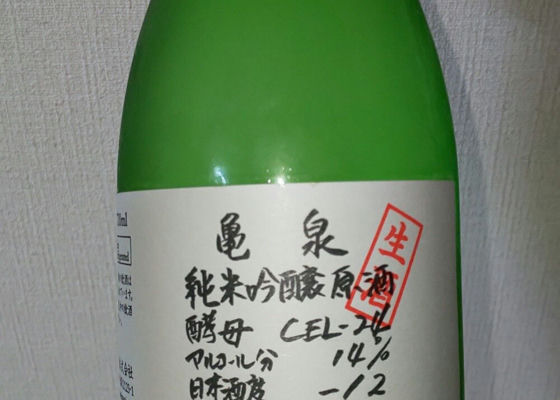 亀泉
生酒
純米吟醸原酒
酵母 CEL-24
アルコール分 14%
日本酒度 -12